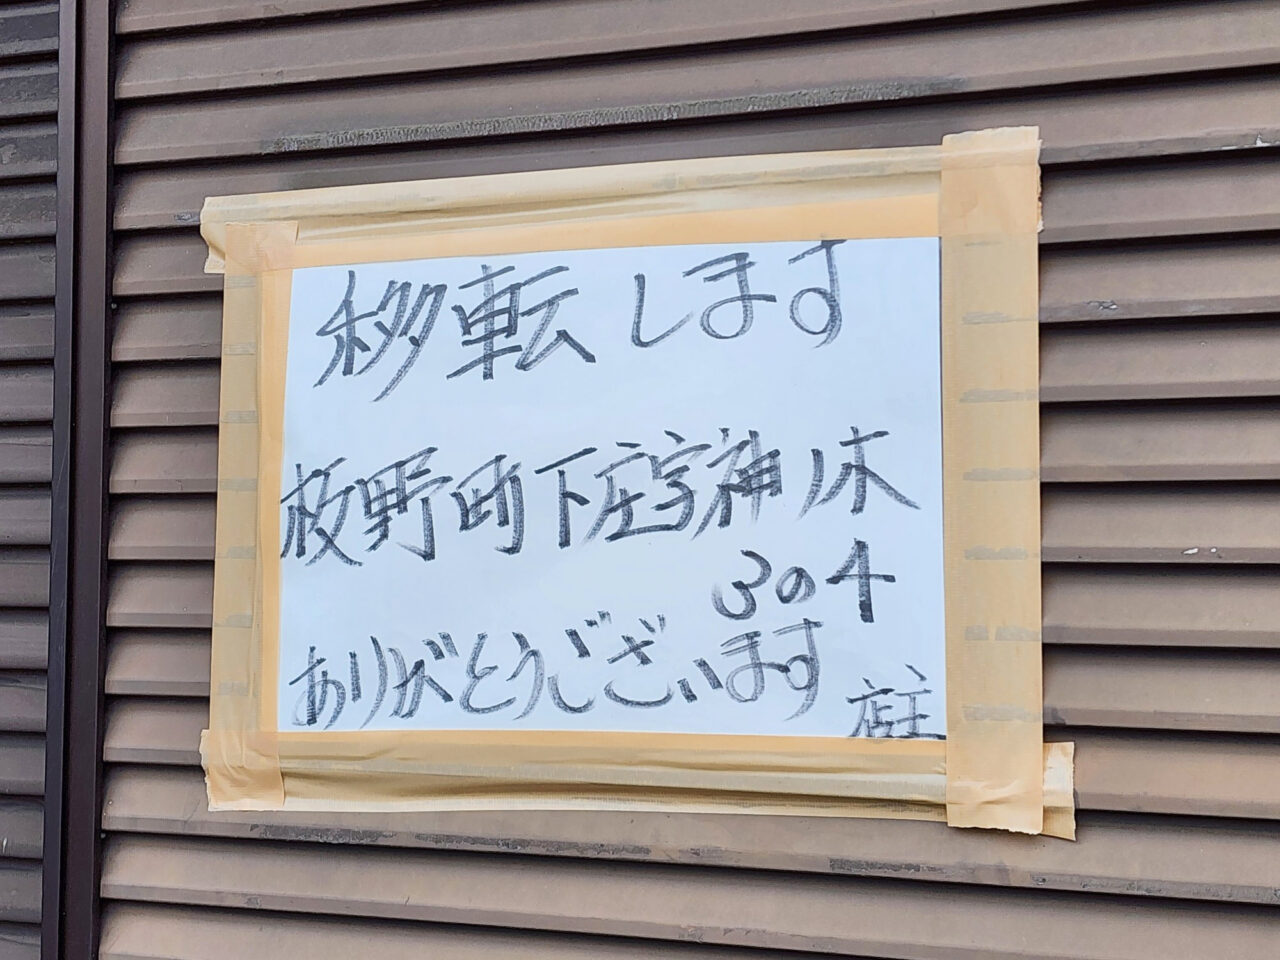 移転します
板野町下庄字神ノ木
3の4
ありがとうございます
店主